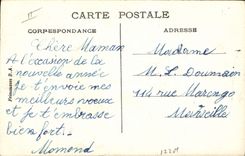 CARTE POSTALE
CORRESPONDANCE
Chère Maman
A l'occasion de la
nouvelle année
je t'envoie mes
meilleurs voeux
et je t'embrasse
bien fort.
ADRESSE
Madame
M. L.
114 rue Marengo
Marseille